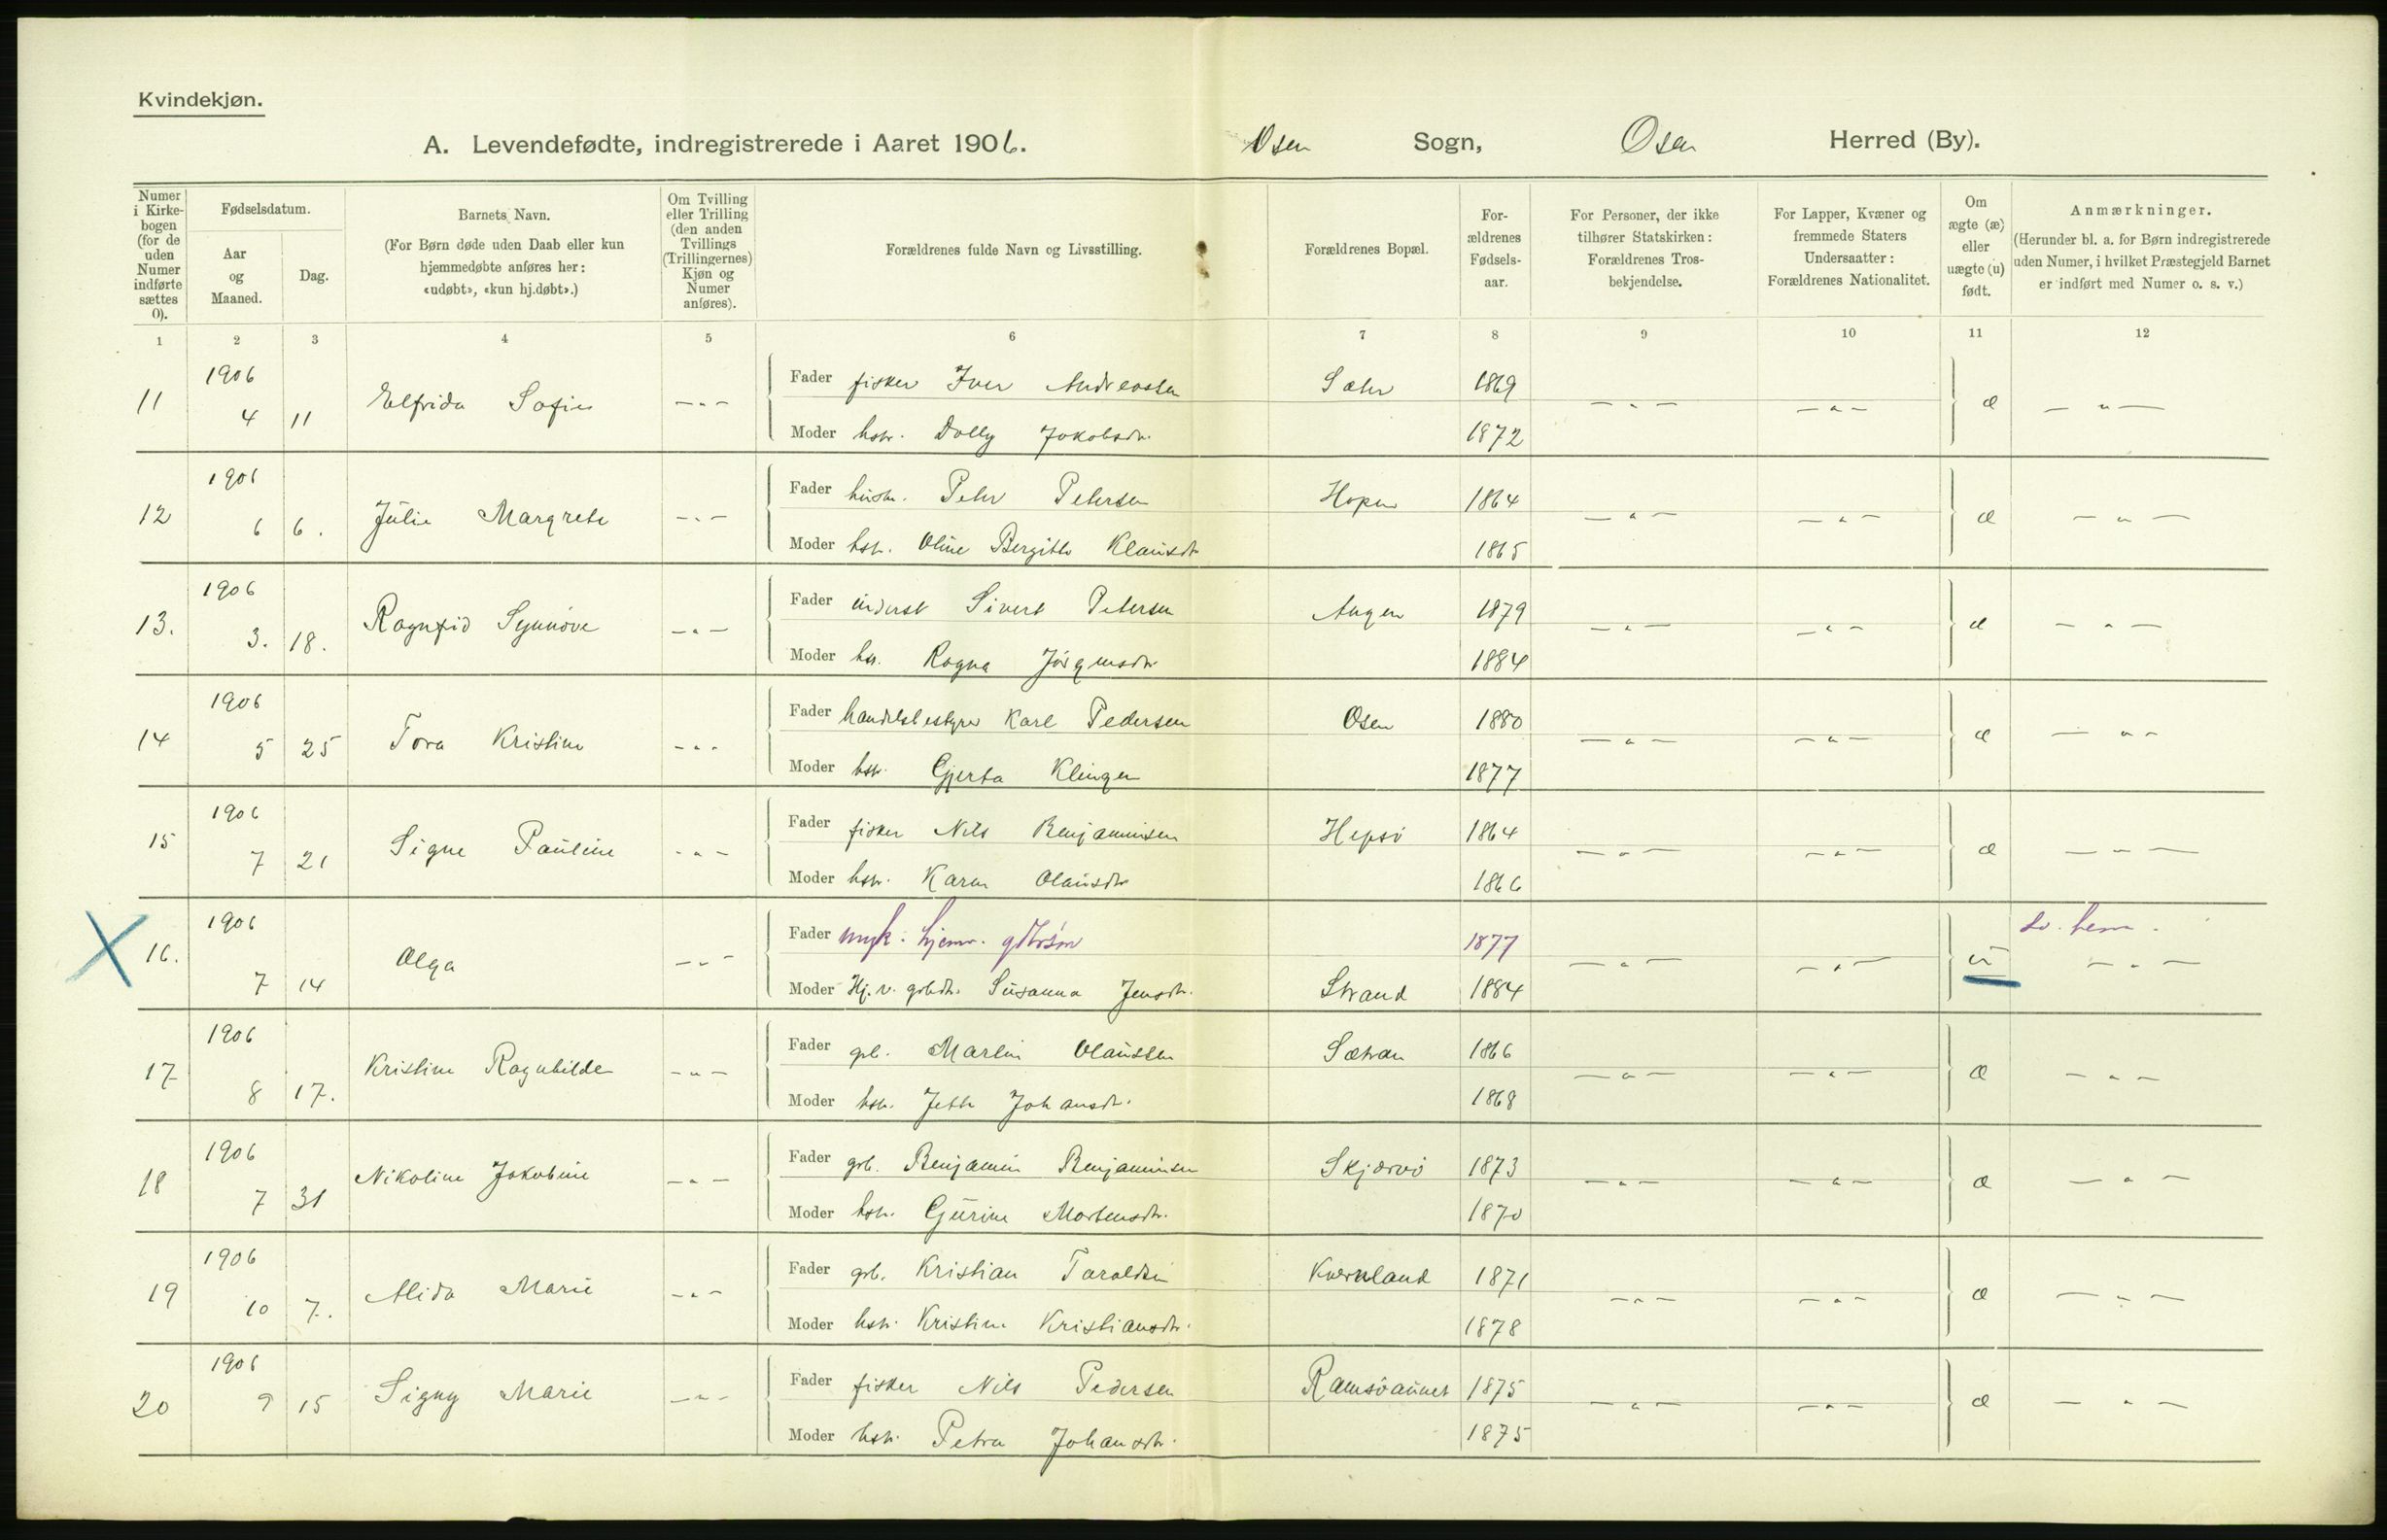 Kvindekjøn.
A. Levendefødte, indregistrerede i Aaret 1906. Osen Sogn, Osen Herred (By).
Numer i Kirkebogen (for de uden Numer indførte sættes 0).
Fødselsdatum.
Aar og Maaned.
Dag.
Barnets Navn.
(For Børn døde uden Daab eller kun hjemmedøbte anføres her: «udøbt», «kun hj.døbt».)
Om Tvilling eller Trilling (den anden Tvillings (Trillingernes) Kjøn og Numer anføres).
Forældrenes fulde Navn og Livsstilling.
Forældrenes Bopæl.
Forældrenes Fødselsaar.
For Personer, der ikke tilhører Statskirken: Forældrenes Trosbekjendelse.
For Lapper, Kvæner og fremmede Staters Undersaatter: Forældrenes Nationalitet.
Om ægte (æ) eller uægte (u) født.
Anmærkninger.
(Herunder bl. a. for Børn indregistrerede uden Numer, i hvilket Præstegjeld Barnet er indført med Numer o. s. v.)
1 2 3 4 5 6 7 8 9 10 11 12
11 1906 4 11 Elfrida Sofie —"— Fader fisker Iver Andreassen Sæter 1869 —"— —"— æ —"—
Moder hstr. Dolly Jakobsdtr. 1872
12 1906 6 6. Julie Margrete —"— Fader husm. Peter Petersen Hopen 1864 —"— —"— æ —"—
Moder hstr. Oline Bergitte Klausdtr 1865
13. 1906 3. 18. Ragnfid Synnöve —"— Fader inderst Sivert Petersen Angen 1879 —"— —"— æ —"—
Moder hstr. Ragna Jörgensdtr 1884
14 1906 5 25 Tora Kristine —"— Fader handelsbestyrer Karl Pedersen Osen 1880 —"— —"— æ —"—
Moder hstr. Gjerta Klingen 1877
15 1906 7 21 Signe Pauline —"— Fader fisker Nils Benjaminsen Hepsö 1864 —"— —"— æ —"—
Moder hstr. Karen Olausdtr 1866
16. 1906 7 14 Olga —"— Fader ugk. hjemv. gdbrsøn 1877 —"— —"— u —"—
Moder Hj.v. grbdtr. Susanna Jensdtr. Strand 1884
17 1906 8 17. Kristine Ragnhilde —"— Fader grb. Martin Olaussen Sætran 1866 —"— —"— æ —"—
Moder hstr. Jette Johansdtr. 1868
18 1906 7 31 Nikoline Jakobine —"— Fader grb. Benjamin Benjaminsen Skjærvö 1873 —"— —"— æ —"—
Moder hstr. Gjurine Mortensdtr. 1870
19 1906 10 7. Alida Marie —"— Fader grb. Kristian Taraldsen Kvernland 1871 —"— —"— æ —"—
Moder hstr. Kristine Kristiansdtr. 1878
20 1906 9 15 Signy Marie —"— Fader fisker Nils Pedersen Ramsöaunet 1875 —"— —"— æ —"—
Moder hstr. Petra Johansdtr. 1875